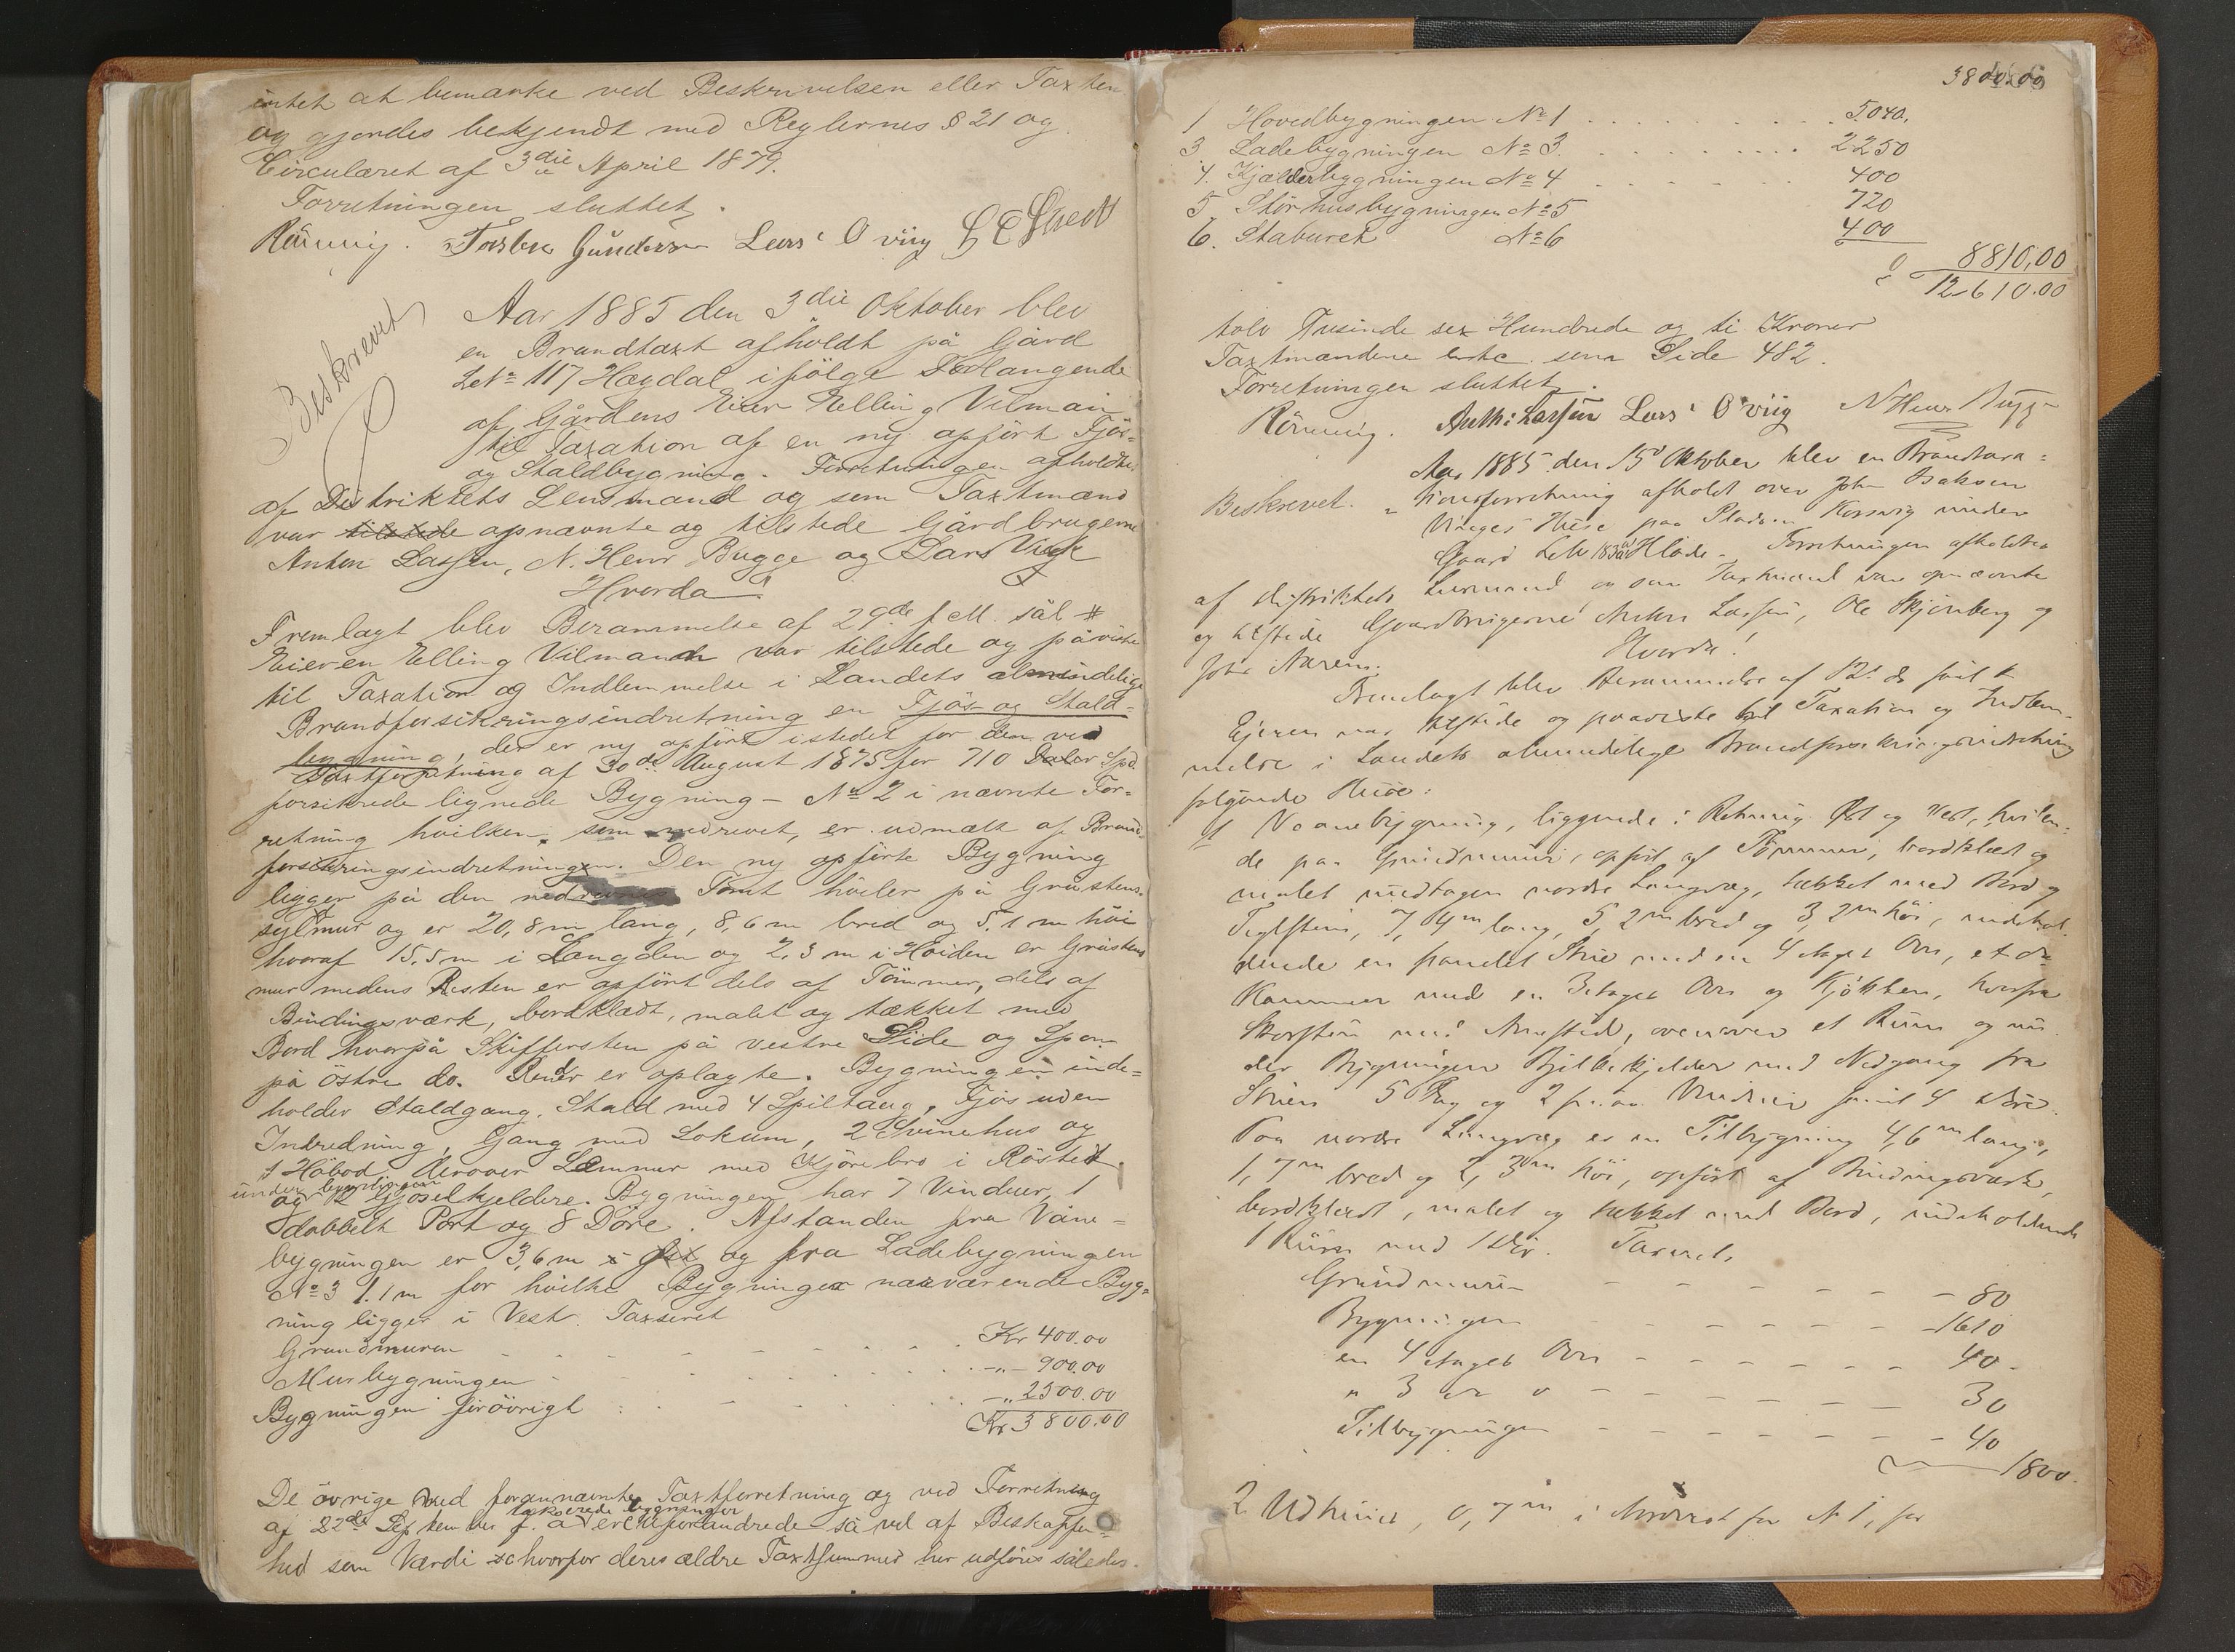 intet at bemærke ved Beskrivelsen eller Taxten
og gjordes bekjendt med Reglernes § 21 og
Circulæret af 3die April 1879.
Forretningen sluttet.
Rönning. Torber Gundersen Lars Oviig
Beskrevet
Aar 1885 den 3die Oktober blev
en Brandtaxt afholdt på Gård
LNo 117 Hægdal ifölge Forlangende
af Gårdens Eier Elling Vilman
til Taxation af en ny opfört Fjös-
og Staldbygning. Forretningen afholdtes
af Distriktets Lensmand og som Taxtmænd
var tilstede opnævnte og tilstede Gårdbrugerne
Anton Lassen, N. Henr Bugge og Lars Viigk
Hvorda!
Fremlagt blev Berammelse af 29de f. M. sål #
Eieren Elling Vilmann var tilstede og påviste
til Taxation og Indlemmelse i Landets almindelige
Brandforsikringsindretning en Fjös og Stald-
bygning, der er ny opfört istedet for den ved
Taxtforretning af 30de August 1875 for 710 Daler Spd.
forsikrede lignede Bygning - No 2 i nævnte For-
retning hvilken, som nedrevet, er udmældt af Brand-
forsikringsindretningen. Den ny opförte Bygning
ligger på den Tomt hviler på Gråstens-
sylmur og er 20,8 m lang, 8,6 m bred og 5,1 m höi
hvoraf 15,5 m i Længden og 2,3 m i Höiden er Gråstens
mur medens Resten er opfört dels af Tömmer, dels af
Bindingsværk, bordklædt, malet og tækket med
Bord hvorpå Skiffersten på vestre Side og Spon
på östre do. Render er oplagte. Bygningen inde-
holder Staldgang, Stald med 4 Spiltaug, Fjös uden
Indredning, Gang med Lokum, 2 Svinehus og
1 Höbod. Herover Lemmer med Kjörebro i Röstet
under bygningen
og 2 Gjöselkjeldere. Bygningen har 7 Vinduer, 1
dobbelt Port og 8 Döre. Afstanden fra Våne-
bygningen er 3,6 m og fra Ladebygningen
No 3 1.1 m for hvilke Bygninger nærværende Byg-
ning ligger i Vest. Taxseret
Grundmuren Kr 400.00
Murbygningen -"- 900.00
Bygningen forövrigt -"- 2500.00
Kr 3800.00
De övrige ved forannævnte Taxtforretning og ved Forretning
takserede bygninger
af 22de September f. a. er uforandrede så vel af Beskaffen-
hed som Værdi hvorfor deres ældre Taxtsummer her udföres således.
3800.00
1 Hovedbygningen No 1 5040.
3 Ladebygningen No 3 2250
4. Kjælderbygningen No 4 400
5 Störhusbygningen No 5 720
6. Staburet No 6 400
8810,00
12610.00
tolv Tusinde sex Hundrede og ti Kroner
Taxtmændene som Side 482.
Forretningen sluttet.
Rönning. Anth: Lassen Lars Oviig N Henr Bugge
Beskrevet.
Aar 1885 den 15' Oktober blev en Brandtaxa-
tionsforretning afholdt over Joh Isaksen
Huse paa Pladsen Korsvig under
Gaard Hlade. Forretningen afholdtes
af Distriktets Lensmand og som Taxtmænd var opnævnte
og tilstede Gaardbrugerne Anton Lassen, Ole Skjönberg og
Hvorda!
Fremlagt blev Berammelse af 12' ds
Ejeren var tilstede og paaviste til Taxation og Indlem-
melse i Landets almindelige Brandforsikringsindretning
fölgende Huse:
1 Vaanebygning, liggende i Retning Öst og Vest, hvilen-
de paa Grundmuur, opfört af Tömmer, bordklædt og
malet undtagen nordre Langvæg, tækket med Bord og
Teglsteen, 7,4m lang, 5,2m bred og 3,2m höi, indehol-
dende en panelet Stue med en 4 etages Ovn, et do
Kammer med en 3 etages Ovn og Kjökken, hvorfra
Skorsteen med Arnested, ovenover et Rum og un-
der Bygningen Bjelkekjelder med Nedgang fra
Stuen 5 Fag og 2 smaa Vinduer samt 4 Döre.
Paa nordre Langvæg er en Tilbygning 4,6m lang,
1,7m bred og 2,3m höi, opfört af Bindingsværk,
bordklædt, malet og tækket med Bord, indeholdende
1 Rum med 1 Dör. Taxeret,
Grundmuren 80
Bygningen 1610
en 4 etages Ovn 40
" 3 do o 30
Tilbygningen 40
1800.
2 Udhuset, 0,7m i for No 1, for